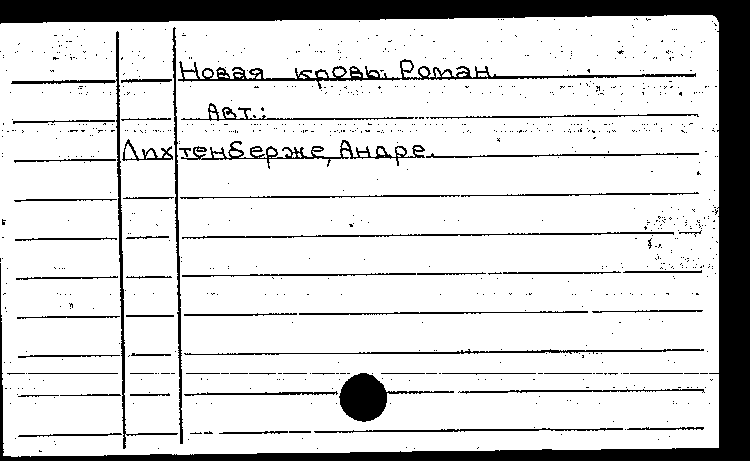 Новая кровь. Роман.
Авт.:
Лихтенберже, Андре.